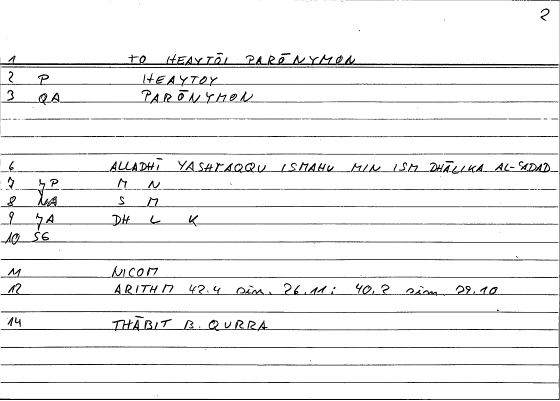 2
1 TO HEAYTŌI PARŌNYMON
2 P HEAYTOY
3 QA PARŌNYMON
6 ALLADHĪ YASHTAQQU ISMAHU MIN ISM DHĀLIKA AL-ʿADAD
7 ʿP M N
8 NA S M
9 ʿA DH L K
10 SG
11 NICOM
12 ARITHM 42.4 sim. 26.11; 40.2 sim. 29.10
14 THĀBIT B. QURRA